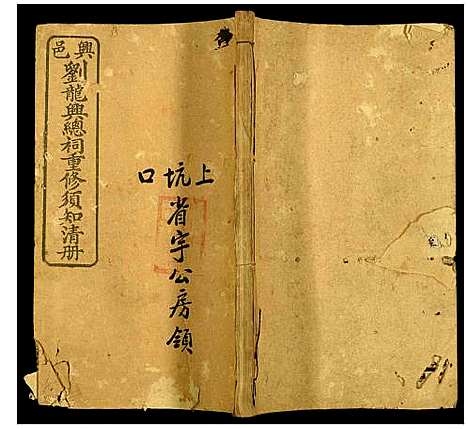 興邑
劉龍興總祠重修須知清册
上坑口
省宇公房領